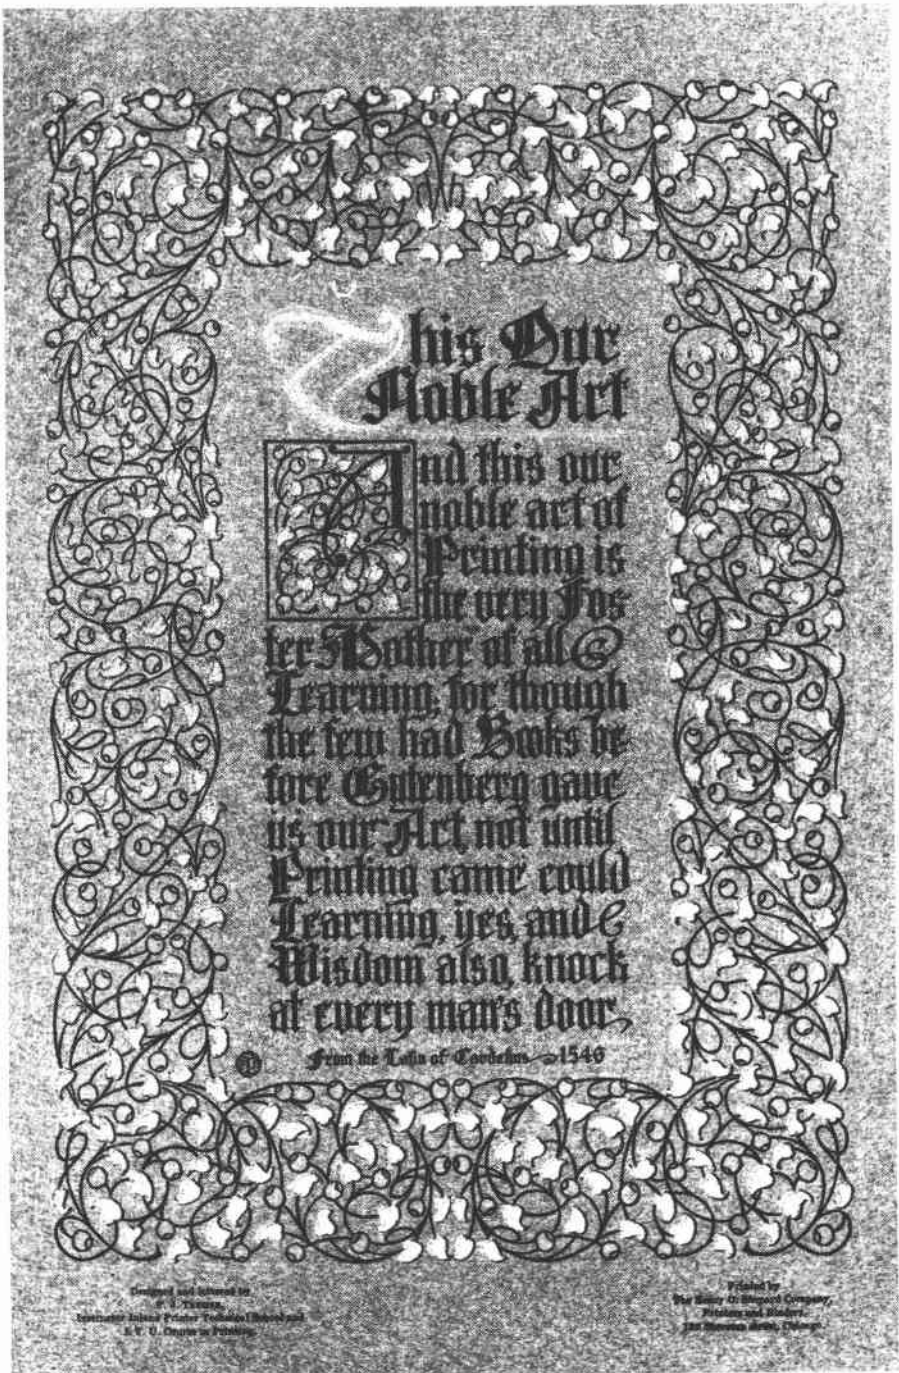 This Our
Noble Art
And this our
noble art of
Printing is
the very Fos
ter Mother of all
Learning; for though
the few had Books be
fore Gutenberg gave
us our Art, not until
Printing came could
Learning, yes, and
Wisdom also, knock
at every man's door.
From the Latin of Corderius 1546
Designed and lettered by
F. J. Trezise,
Instructor Inland Printer Technical School and
I. T. U. Course in Printing.
Printed by
The Henry O. Shepard Company,
Printers and Binders,
Sherman Street, Chicago.